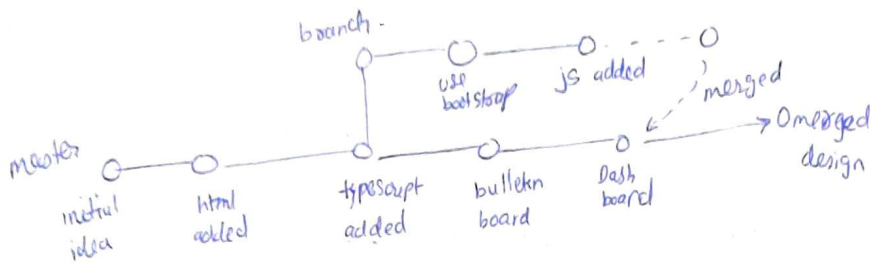 branch.
use
bootstrap
js added
merged
master
initial
idea
html
added
typescript
added
bulletin
board
Dash
board
merged
design